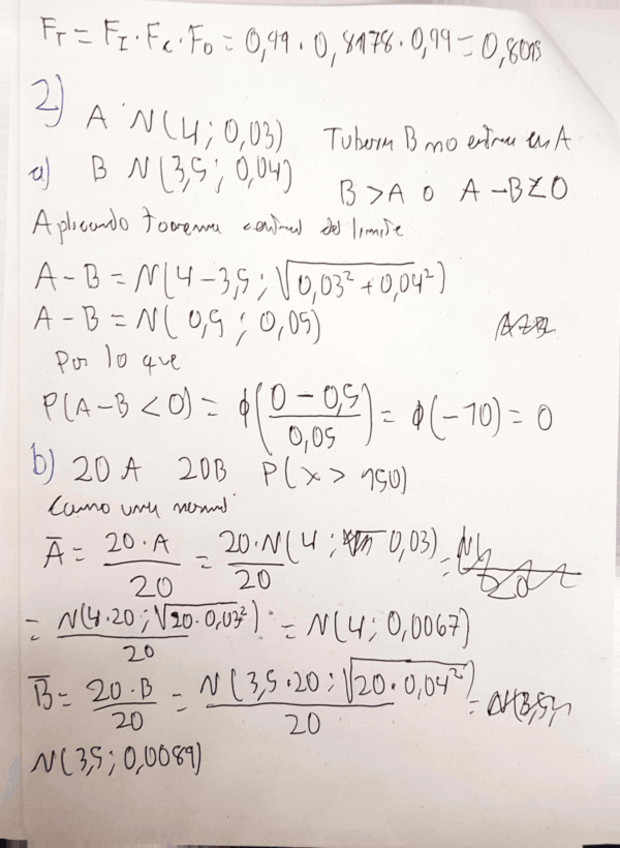 F_T = F_I · F_C · F_O = 0,99 · 0,8178 · 0,99 = 0,8015
2)
A N(4; 0,03) Tuberia B no entra en A
a) B N(3,5; 0,04)
B > A o A - B < 0
Aplicando teorema central del limite
A - B = N(4 - 3,5; √(0,03² + 0,04²))
A - B = N(0,5; 0,05)
Por lo que
P(A - B < 0) = ϕ((0 - 0,5)/0,05) = ϕ(-10) = 0
b) 20 A 20B P(x > 150)
Como una normal
Ā = 20·A/20 = 20·N(4; 0,03)/20 =
= N(4·20; √(20·0,03²))/20 = N(4; 0,0067)
B̄ = 20·B/20 = N(3,5·20; √(20·0,04²))/20 =
N(3,5; 0,0089)